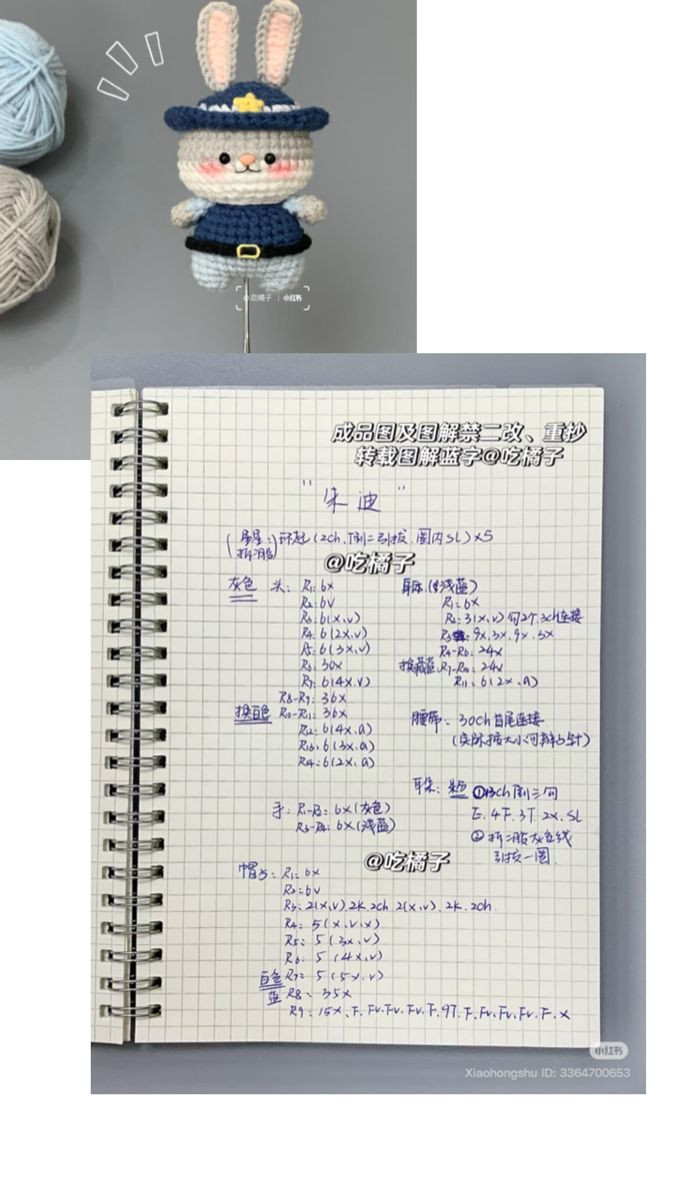 @吃橘子 | 小红书
成品图及图解禁二改、重抄
转载图解蓝字@吃橘子
"朱迪"
(星星: 环起(2ch.T倒二引拔.圈内SL)×5
拆2股)
@吃橘子
灰色 头: R1: 6x
R2: 6v
R3: 6(x.v)
R4: 6(2x.v)
R5: 6(3x.v)
R6: 30x
R7: 6(4x.v)
R8-R9: 36x
换白色 R10-R11: 36x
R12: 6(4x.a)
R13: 6(3x.a)
R14: 6(2x.a)
身体(浅蓝)
R1: 6x
R2: 3(x.v) 勾2个3ch连接
R3: 9x.3x.9x.3x
R4-R6: 24x
换藏蓝: R7-R10: 24x
R11: 6(2x.a)
腰带: 30ch首尾连接
(实际按大小可辫子针)
手: R1-R2: 6x(灰色)
R3-R4: 6x(浅蓝)
耳朵: ①13ch倒三勾
E.4F.3T.2x.SL
②拆2股灰色线
引拔一圈
@吃橘子
帽子: R1: 6x
R2: 6v
R3: 2(x.v).2K.2ch.2(x.v).2K.2ch
R4: 5(x.v.x)
R5: 5(3x.v)
R6: 5(4x.v)
白色 R7: 5(5x.v)
蓝 R8: 35x
R9: 15x.F.Fv.Fv.Fv.F.9T.F.Fv.Fv.Fv.F.x
小红书
Xiaohongshu ID: 3364700653